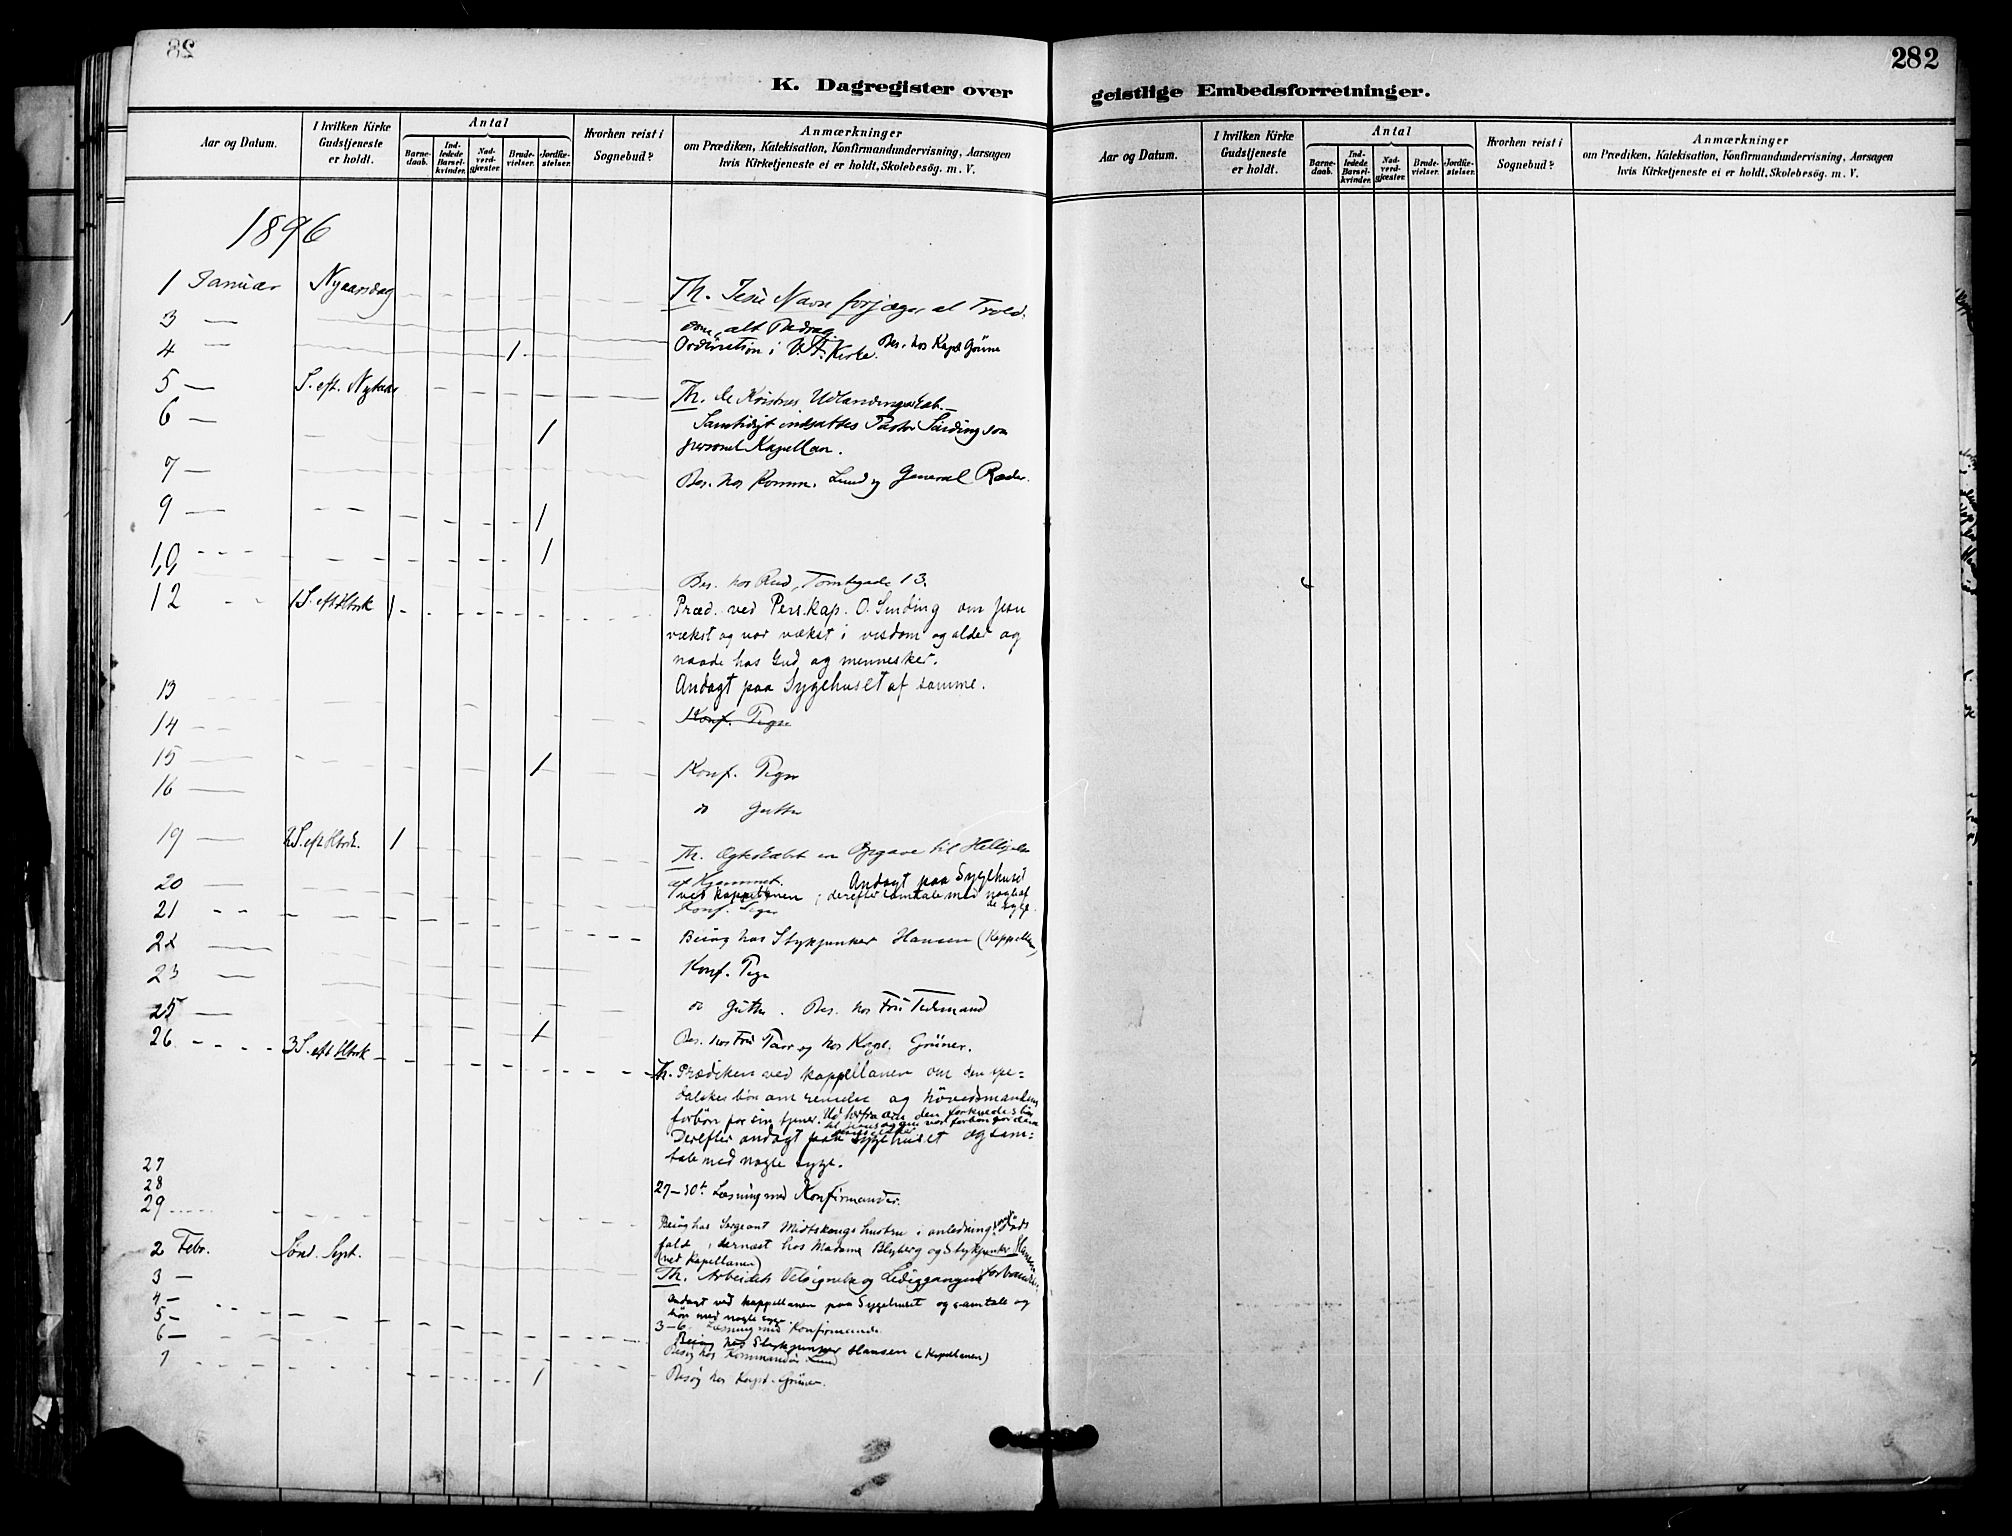 282
K. Dagregister over geistlige Embedsforretninger.
Aar og Datum.
I hvilken Kirke Gudstjeneste er holdt.
Antal
Barne-daab.
Ind-ledede Barsel-kvinder.
Nad-verd-gjæster.
Brude-vielser.
Jordfæ-stelser.
Hvorhen reist i Sognebud?
Anmærkninger
om Prædiken, Katekisation, Konfirmandundervisning, Aarsagen
hvis Kirketjeneste ei er holdt, Skolebesög. m. V.
1896
1 Januar Nyaarsdag Th. Jesu Navn
3 —
4 — 1 Ordination i V. F. Kirke. Bes. hos Kapt Grüner
5 — S. eft. Nytaar Th. de Kristnes
6 — 1 Samtidigt indsattes Pastor Sinding som
personel Kapellan.
7 — Bes. hos Komm. Lund og General Ræder.
9 — 1
10 1
Bes. hos Rud, Tomtegade 13.
12 1 S. eft Hbrk 1 Præd. ved Pers. kap. O. Sinding om Jesu
vækst og vor vækst i visdom og alder og
naade hos Gud og mennesker.
13 Andagt paa Sygehuset af samme.
14 Konf. Piger
15 1 Konf. Piger
16 do Gutter
19 — 2 S. eft Hbrk. 1 Th. Ægteskabet en Opgave til
20 — af Hjemmet. Andagt paa Sygehuset
ved kappellanen; derefter samtale med nogle af de syge.
21 Konf. Piger
22 — Besög hos Stykjunker Hansen (Kappellan)
23 — Konf. Piger
25 — do Gutter. Bes. hos Fru Tidemand
26 3 S. eft Hbrk 1 Bes. hos Fru og hos Kapt. Grüner.
Th. Prædiken ved kappellanen om den spe=
dalskes bön om renselse og hövedsmandens
forbön for sin tjener.
Derefter andagt paa sygehuset og sam=
tale med nogle syge.
27
28 27—30te Læsning med Konfirmander.
29
Besög hos Sergeant Midtskougs hustru i anledning döds
fald, dernæst hos Madame Blyberg og Stykjunker Hansen
(ved Kapellanen)
2 Febr. Sönd. Sept. Th. Arbeidets Velsignelse og Lediggangens
3 —
4 — Andagt ved kappellanen paa Sygehuset og samtale og
bön med nogle syge
5 — 3—6 Læsning med Konfirmander
6 — Besög hos Stykjunker Hansen (Kapellanen)
Besög hos Kommandör Lund
7 1 Besög hos Kapt. Grüner.
Aar og Datum.
I hvilken Kirke Gudstjeneste er holdt.
Antal
Barne-daab.
Ind-ledede Barsel-kvinder.
Nad-verd-gjæster.
Brude-vielser.
Jordfæ-stelser.
Hvorhen reist i Sognebud?
Anmærkninger
om Prædiken, Katekisation, Konfirmandundervisning, Aarsagen
hvis Kirketjeneste ei er holdt, Skolebesög. m. V.